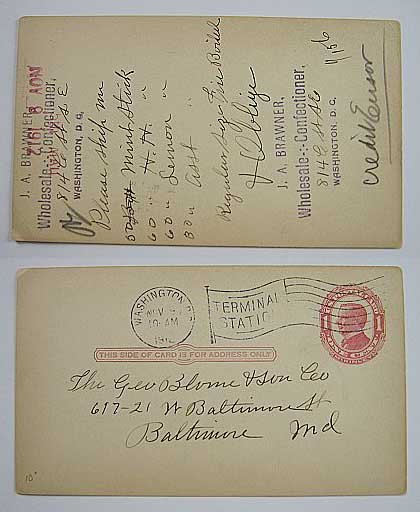 J. A. BRAWNER,
Wholesale Confectioner,
814 C St S E
WASHINGTON, D. C.
NOV 8 1912
Please ship me
Mint Stick
60 " H. H. "
60 " Lemon "
30 " Asst "
Regular Size Fire Boiled
& Oblige
J. A. BRAWNER,
Wholesale Confectioner,
814 C St S E
WASHINGTON, D. C.
WASHINGTON, D.C.
NOV
10-AM
1912
TERMINAL
STATION
1
1
THIS SIDE OF CARD IS FOR ADDRESS ONLY
The Geo Blome & Son Co
617-21 W Baltimore St
Baltimore Md